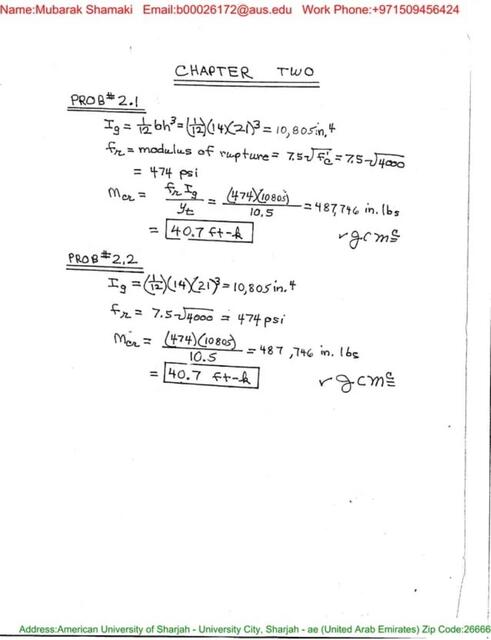 Name:Mubarak Shamaki Email:b00026172@aus.edu Work Phone:+971509456424
CHAPTER TWO
PROB# 2.1
Ig = 1/12 bh³ = (1/12)(14)(21)³ = 10,805 in.⁴
fr = modulus of rupture = 7.5√f'c = 7.5√4000
= 474 psi
Mcr = fr Ig / yt = (474)(10805) / 10.5 = 487,746 in. lbs
= 40.7 ft-k
PROB# 2.2
Ig = (1/12)(14)(21)³ = 10,805 in.⁴
fr = 7.5√4000 = 474 psi
Mcr = (474)(10805) / 10.5 = 487,746 in. lbs
= 40.7 ft-k
Address:American University of Sharjah - University City, Sharjah - ae (United Arab Emirates) Zip Code:26666